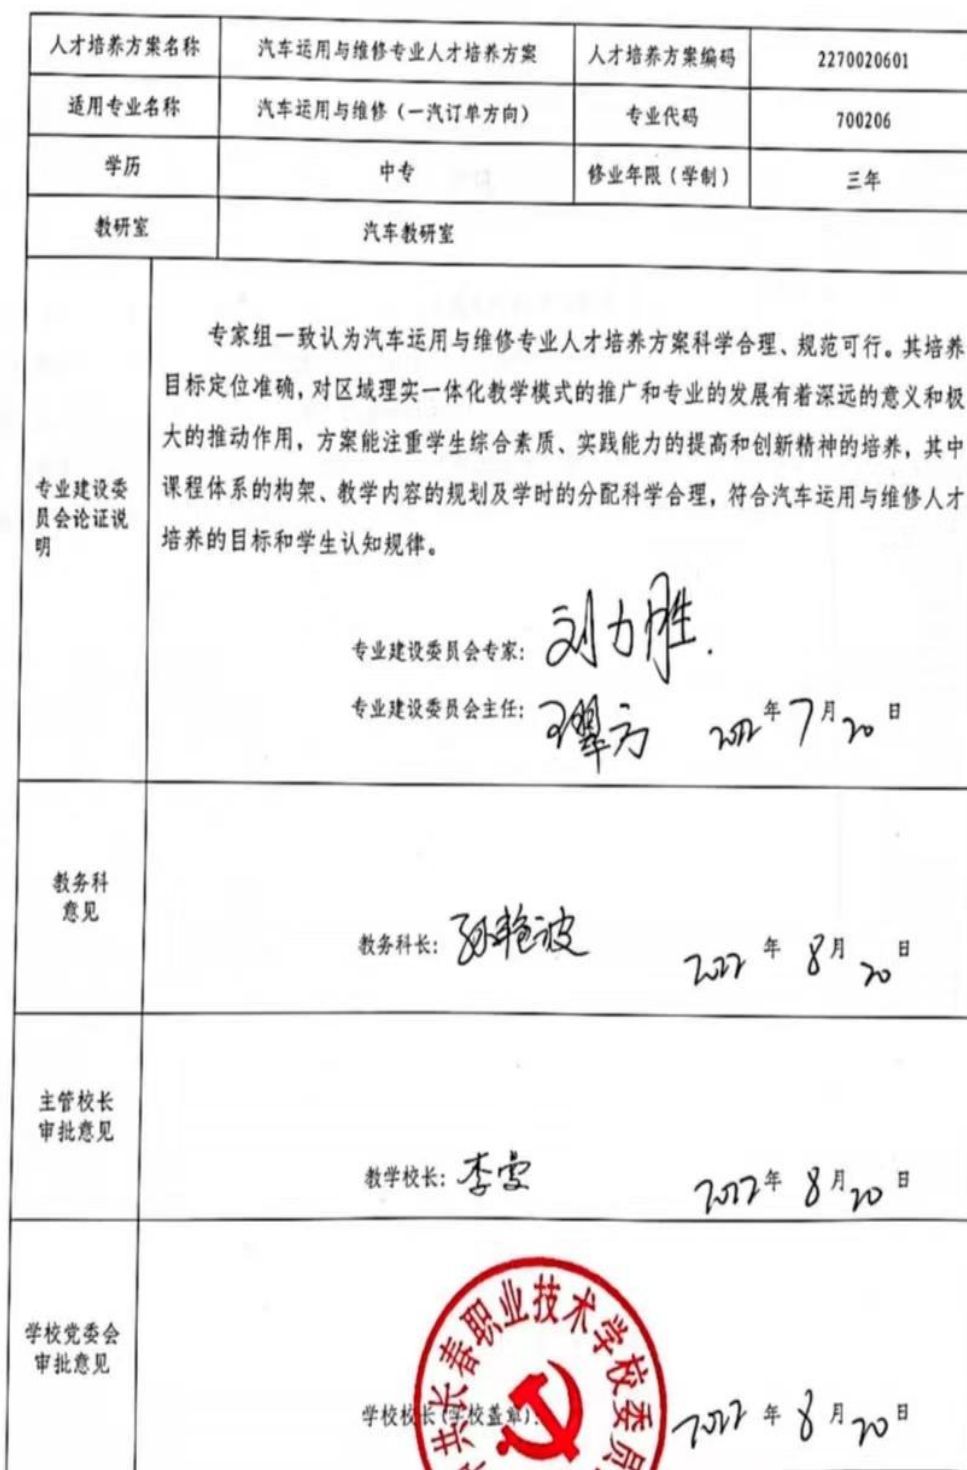 人才培养方案名称 汽车运用与维修专业人才培养方案 人才培养方案编码 2270020601
适用专业名称 汽车运用与维修（一汽订单方向） 专业代码 700206
学历 中专 修业年限（学制） 三年
教研室 汽车教研室
专家组一致认为汽车运用与维修专业人才培养方案科学合理、规范可行。其培养
目标定位准确，对区域理实一体化教学模式的推广和专业的发展有着深远的意义和极
大的推动作用，方案能注重学生综合素质、实践能力的提高和创新精神的培养，其中
课程体系的构架、教学内容的规划及学时的分配科学合理，符合汽车运用与维修人才
培养的目标和学生认知规律。
专业建设委
员会论证说
明
专业建设委员会专家：刘力胜.
专业建设委员会主任： 2022年7月20日
教务科
意见
教务科长：孙艳波 2022年8月20日
主管校长
审批意见
教学校长：李雯 2022年8月20日
学校党委会
审批意见
学校校长（学校盖章）： 2022年8月20日
共长春职业技术学校委员